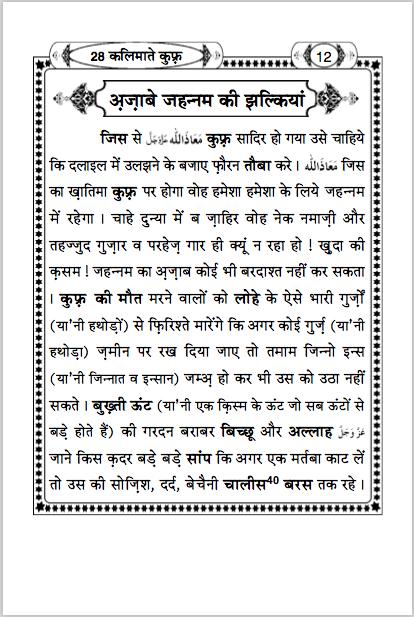 28 कलिमाते कुफ़्र
12
अ़ज़ाबे जहन्नम की झल्कियां
जिस से مَعَاذَاللّٰه عَزَّوَجَلَّ कुफ़्र सादिर हो गया उसे चाहिये
कि दलाइल में उलझने के बजाए फ़ौरन तौबा करे । مَعَاذَاللّٰه जिस
का ख़ातिमा कुफ़्र पर होगा वोह हमेशा हमेशा के लिये जहन्नम
में रहेगा । चाहे दुन्या में ब ज़ाहिर वोह नेक नमाज़ी और
तहज्जुद गुज़ार व परहेज़ गार ही क्यूं न रहा हो ! ख़ुदा की
क़सम ! जहन्नम का अ़ज़ाब कोई भी बरदाश्त नहीं कर सकता
। कुफ़्र की मौत मरने वालों को लोहे के ऐसे भारी गुर्ज़ों
(या'नी हथोड़ों) से फ़िरिश्ते मारेंगे कि अगर कोई गुर्ज़ (या'नी
हथोड़ा) ज़मीन पर रख दिया जाए तो तमाम जिन्नो इन्स
(या'नी जिन्नात व इन्सान) जम्अ़ हो कर भी उस को उठा नहीं
सकते । बुख़्ती ऊंट (या'नी एक क़िस्म के ऊंट जो सब ऊंटों से
बड़े होते हैं) की गरदन बराबर बिच्छू और अल्लाह عَزَّوَجَلَّ
जाने किस क़दर बड़े बड़े सांप कि अगर एक मर्तबा काट लें
तो उस की सोज़िश, दर्द, बेचैनी चालीस40 बरस तक रहे ।